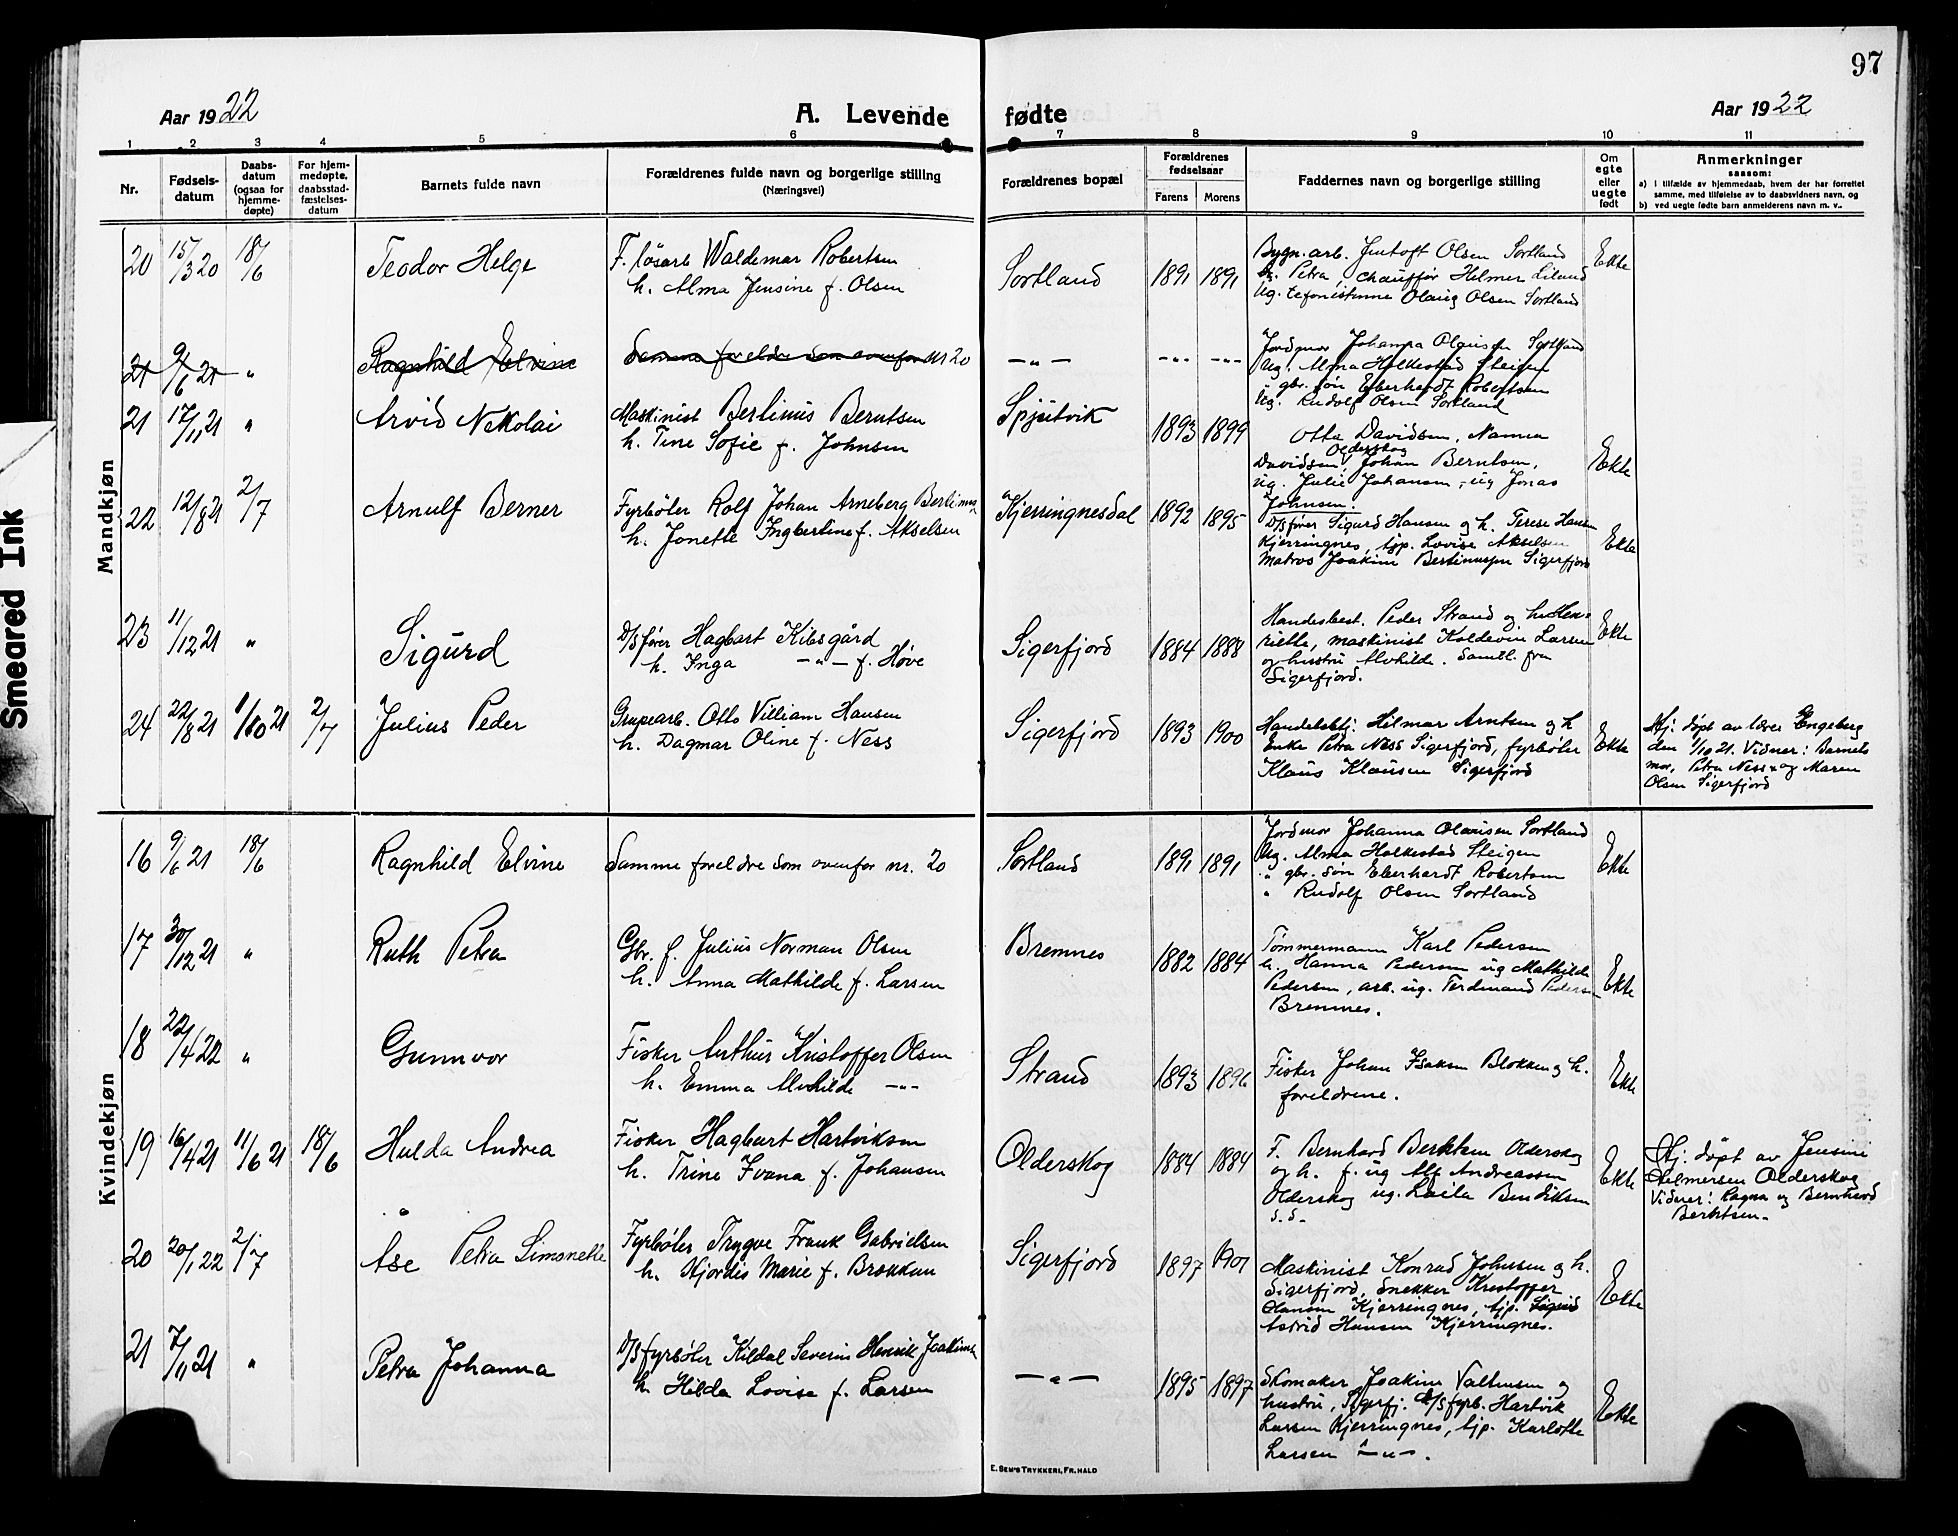 97
Aar 1922
A. Levende
fødte
Aar 1922
1 2 3 4 5 6 7 8 9 10 11
Nr.
Fødsels-
datum
Daabs-
datum
(ogsaa for
hjemme-
døpte)
For hjem-
medøpte,
daabsstad-
fæstelses-
datum
Barnets fulde navn
Forældrenes fulde navn og borgerlige stilling
(Næringsvei)
Forældrenes bopæl
Forældrenes
fødselsaar
Farens Morens
Faddernes navn og borgerlige stilling
Om
egte
eller
uegte
født
Anmerkninger
saasom:
a) i tilfælde av hjemmedaab, hvem der har forrettet
samme, med tilføielse av to daabsvidners navn, og
b) ved uegte fødte barn anmelderens navn m. v..
Mandkjøn
20 15/3 20 18/6 Teodor Helge
F. løsarb Waldemar Robertsen
h. Alma Jensine f. Olsen
Sortland 1891 1891
Bygn. arb. Jentoft Olsen Sortland
h. Petra, chauffør Helmer Lilund
ug. tefonistinne Olaug Olsen Sortland
Ekte
21 9/6 21 " Ragnhild Elvine
Samme foreldre som ovenfor nr 20
— " — - " - - " -
Jordmor Johanna Olausen Sortland
ug. Alma Holkestad Steigen
" gbr. søn Eberhardt Robertsen
ug. Rudolf Olsen Sortland
21 17/11 21 " Arvid Nikolai
Maskinist Bertinus Berntsen
h. Tine Sofie f. Johnsen
Spjutvik 1893 1899
Otto Davidsen, Nanna
Davidsen, Olderskog Johan Berntsen,
ug. Julie Johansen, ug Jonas
Johnsen.
Ekte
22 12/8 21 2/7 Arnulf Berner
Fyrbøter Rolf Johan Arneberg Bertinus
h. Jonette Ingbertine f. Akselsen
Kjerringnesdal 1892 1895
D/S fører Sigurd Hansen og h. Terese Hansen
Kjerringnes, tjp. Lovise Akselsen
Matros Joakim Bertinussen Sigerfjord
Ekte
23 11/12 21 " Sigurd
D/S fører Hagbart Kibsgård
h. Inga — " — f. Høve
Sigerfjord 1884 1888
Handesbest. Peder Strand og h. Hen-
riette, maskinist Koldevin Larsen
og hustru Alvhilde. Samtl. fra
Sigerfjord.
Ekte
24 22/8 21 1/10 21 2/7 Julius Peder
Grupearb. Otto Villiam Hansen
h. Dagmar Oline f. Ness
Sigerfjord 1893 1900
Handelsbtj. Hilmar Arntsen og h
Enke Petra Ness Sigerfjord, fyrbøter
Klaus Klausen Sigerfjord
Ekte
Hj. døpt av lærer Engeberg
den 1/10 21. Vidner: Barnets
mor, Petra Ness og Maren
Olsen Sigerfjord
Kvindekjøn
16 9/6 21 18/6 Ragnhild Elvine
Samme foreldre som ovenfor nr. 20
Sortland 1891 1891
Jordmor Johanna Olausen Sortland
Ug. Alma Holkestad Steigen
" gbr. søn Eberhardt Robertsen
" Rudolf Olsen Sortland
Ekte
17 30/12 21 " Ruth Petra
Gbr. f. Julius Norman Olsen
h. Anna Mathilde f. Larsen
Bremnes 1882 1884
Tømmermann Karl Pedersen
h. Hanna Pedersen ug Mathilde
Pedersen, arb. ug. Ferdinand Pedersen
Bremnes.
Ekte
18 22/4 22 " Gunnvor
Fisker Arthur Kristoffer Olsen
h. Emma Alvhilde - " -
Strand 1893 1896
Fisker Johan Isaksen Blokken og h.
foreldrene.
Ekte
19 16/4 21 11/6 21 18/6 Hulda Andrea
Fisker Hagbart Hartviksen
h. Trine Ivana f. Johansen
Olderskog 1884 1884
F. Bernhard Berhtsen Olderskog
og h. f. ug Alf Andreassen
Olderskog ug. Laila Bendiksen
s. s.
Ekte
Hj. døpt av Jensine
Helmersen Olderskog
Vidner: Ragna og Bernhard
Berhtsen
20 20/1 22 2/7 Åse Petra Simonette
Fyrbøter Trygve Frank Gabrielsen
h. Hjordis Marie f. Brokkan
Sigerfjord 1897 1901
Maskinist Konrad Johnsen og h.
Sigerfjord, snekker Kristoffer
Olausen Kjerringnes, tjp. Sigrid
Astrid Hansen Kjerringnes.
Ekte
21 7/11 21 " Petra Johanna
D/S fyrbøter Kildal Severin Henrik Joakims
h. Hilda Lovise f. Larsen
— " — 1895 1897
Skomaker Joakim Valtinsen og
hustru, Sigerfj. D/S fyrb. Hartvik
Larsen Kjerringnes, tjp. Karlotte
Larsen — " —.
Ekte
E. SEM'S TRYKKERI, FR.HALD
Smeared Ink